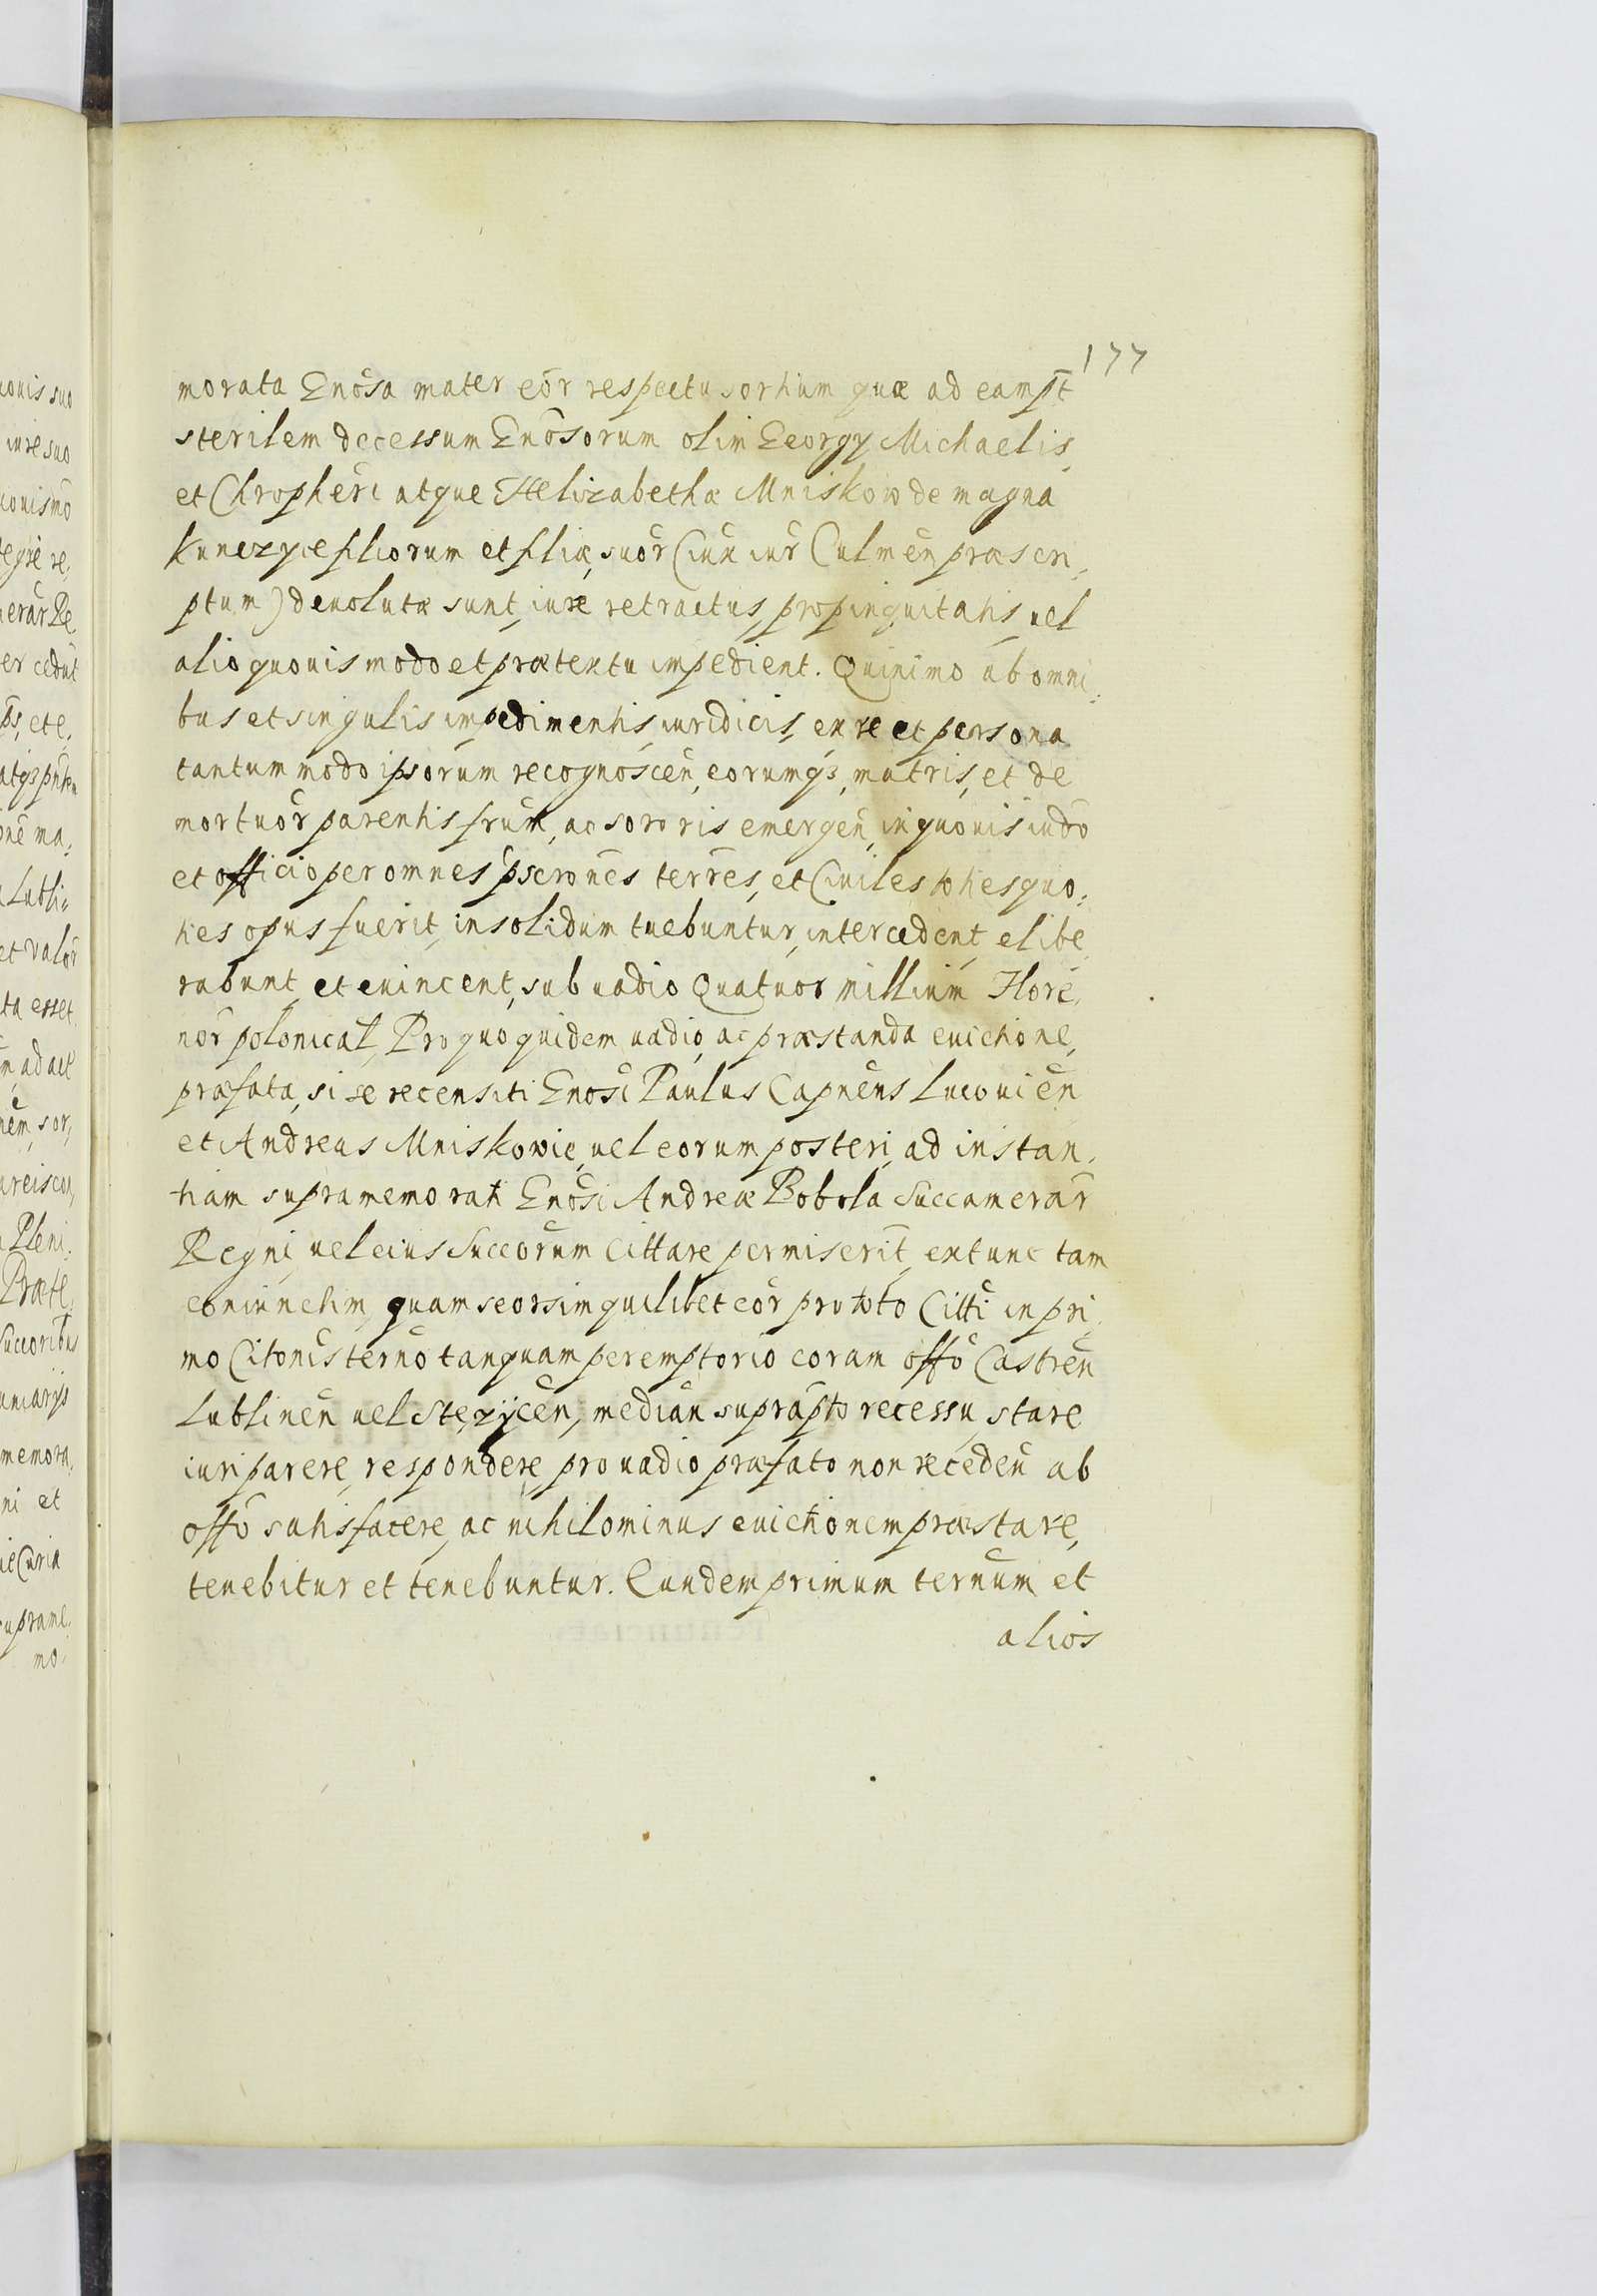 177
morata Gnōsa mater eōr respectu sortium quæ ad eam p̄t
sterilem decessum Gnōsorum olim Georgy Michaelis,
et Chropheri atque Helizabethæ Mniskow de magna
Kunczyce filiorum et filiæ, suōr (iux iur Culmen̄ præscri,
ptum) deuolutæ sunt, iure retractus, propinquitatis, uel
alio quouis modo et prætextu impedient. Quinimo ab omni:
bus et singulis impedimentis, iuridicis, ex re et persona
tantum modo ipsorum recognoscen̄, eorumq3, matris, et de
mortuōr parentis frūm, ac sororis emergen̄, in quouis iudō
et officio per omnes p̄scronēs terrēs, et Ciuiles toties quo:
ties opus fuerit, insolidum tuebuntur, intercedent, elibe,
rabunt et euincent, sub uadio Quatuor millium Flore,
nōr polonical, Pro quo quidem uadio, ac præstanda euictione,
præfata, si se recensiti Gnōsi Paulus Capnēus Lucouien̄
et Andreas Mniskowie, uel eorum posteri, ad instan,
tiam supramemorati Gnōsi Andreæ Bobola Succamerār
Regni, uel eius Succorum Cittare permiserit, extunc tam
coniunctim, quam seorsim quilibet eōr pro toto Cittī in pri,
mo Citonis ternō tanquam peremptorio coram offō Castren̄
Lublinen̄ uel Stęzycen̄, median̄ suprap̄to recessu, stare
iuri parere, respondere, pro uadio præfato non receden̄ ab
offō satisfacere, ac nihilominus euictionem præstare,
tenebitur et tenebuntur. Eundem primum ternum et
alios
uouis suo
iure suo
uouismō
tegrē re,
nerār Re
er cedut
et e,
onē ma,
Lubli=
et Valōr
ta esset
ad act
nem, sor,
Pleni,
Præte,
Succoribus
memora,
ni et
Curia
suprame,
mo-